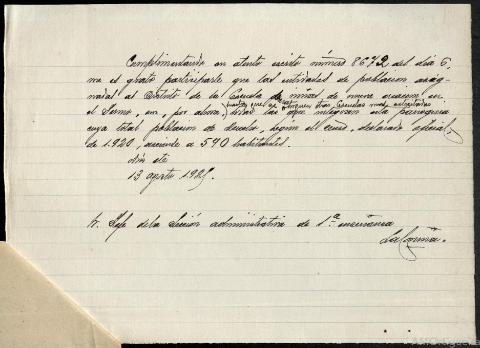 Cumplimentando su atento escrito número 8672 del día 6,
me es grato participarle que las entidades de población asig-
nadas al Distrito de la Escuela de niños de nueva creación en
hasta que se creen otras Escuelas más
el Seimo, son, por ahora, todas las que integran esta parroquia
cuya total población de derecho, según el censo, declarado oficial,
de 1920, asciende a 540 habitantes.
Dios etc
13 agosto 1925.
Sr. Jefe de la Sección administrativa de 1ª enseñanza
La Coruña.